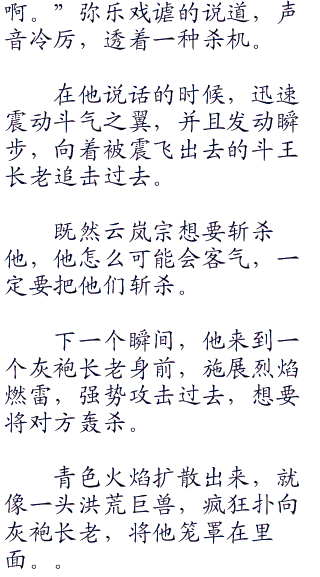 啊。”弥乐戏谑的说道，声
音冷厉，透着一种杀机。
在他说话的时候，迅速
震动斗气之翼，并且发动瞬
步，向着被震飞出去的斗王
长老追击过去。
既然云岚宗想要斩杀
他，他怎么可能会客气，一
定要把他们斩杀。
下一个瞬间，他来到一
个灰袍长老身前，施展烈焰
燃雷，强势攻击过去，想要
将对方轰杀。
青色火焰扩散出来，就
像一头洪荒巨兽，疯狂扑向
灰袍长老，将他笼罩在里
面。。